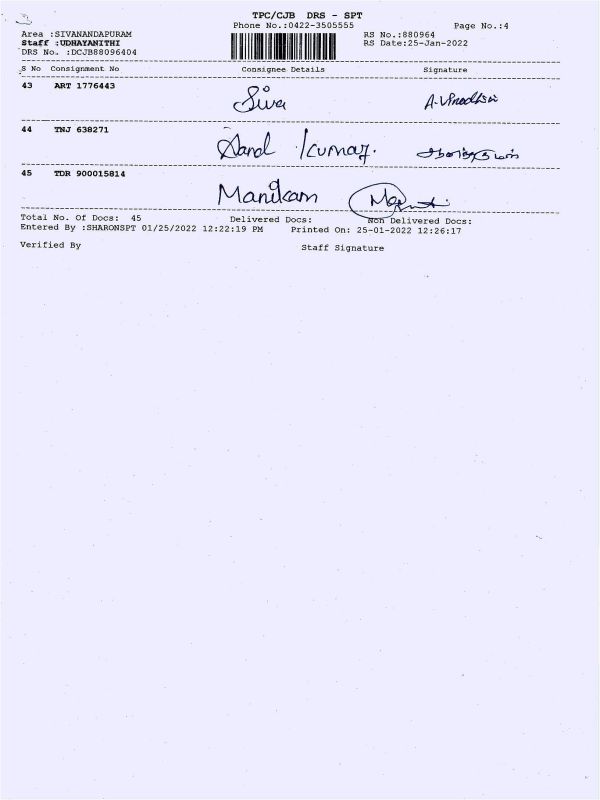 TPC/CJB DRS - SPT
Phone No.:0422-3505555 Page No.:4
Area :SIVANANDAPURAM RS No.:880964
Staff :UDHAYANITHI RS Date:25-Jan-2022
DRS No. :DCJB88096404
S No Consignment No Consignee Details Signature
43 ART 1776443 Siva
44 TNJ 638271 Kumar.
45 TDR 900015814 Manikam
Total No. Of Docs: 45 Delivered Docs: Non Delivered Docs:
Entered By :SHARONSPT 01/25/2022 12:22:19 PM Printed On: 25-01-2022 12:26:17
Verified By Staff Signature